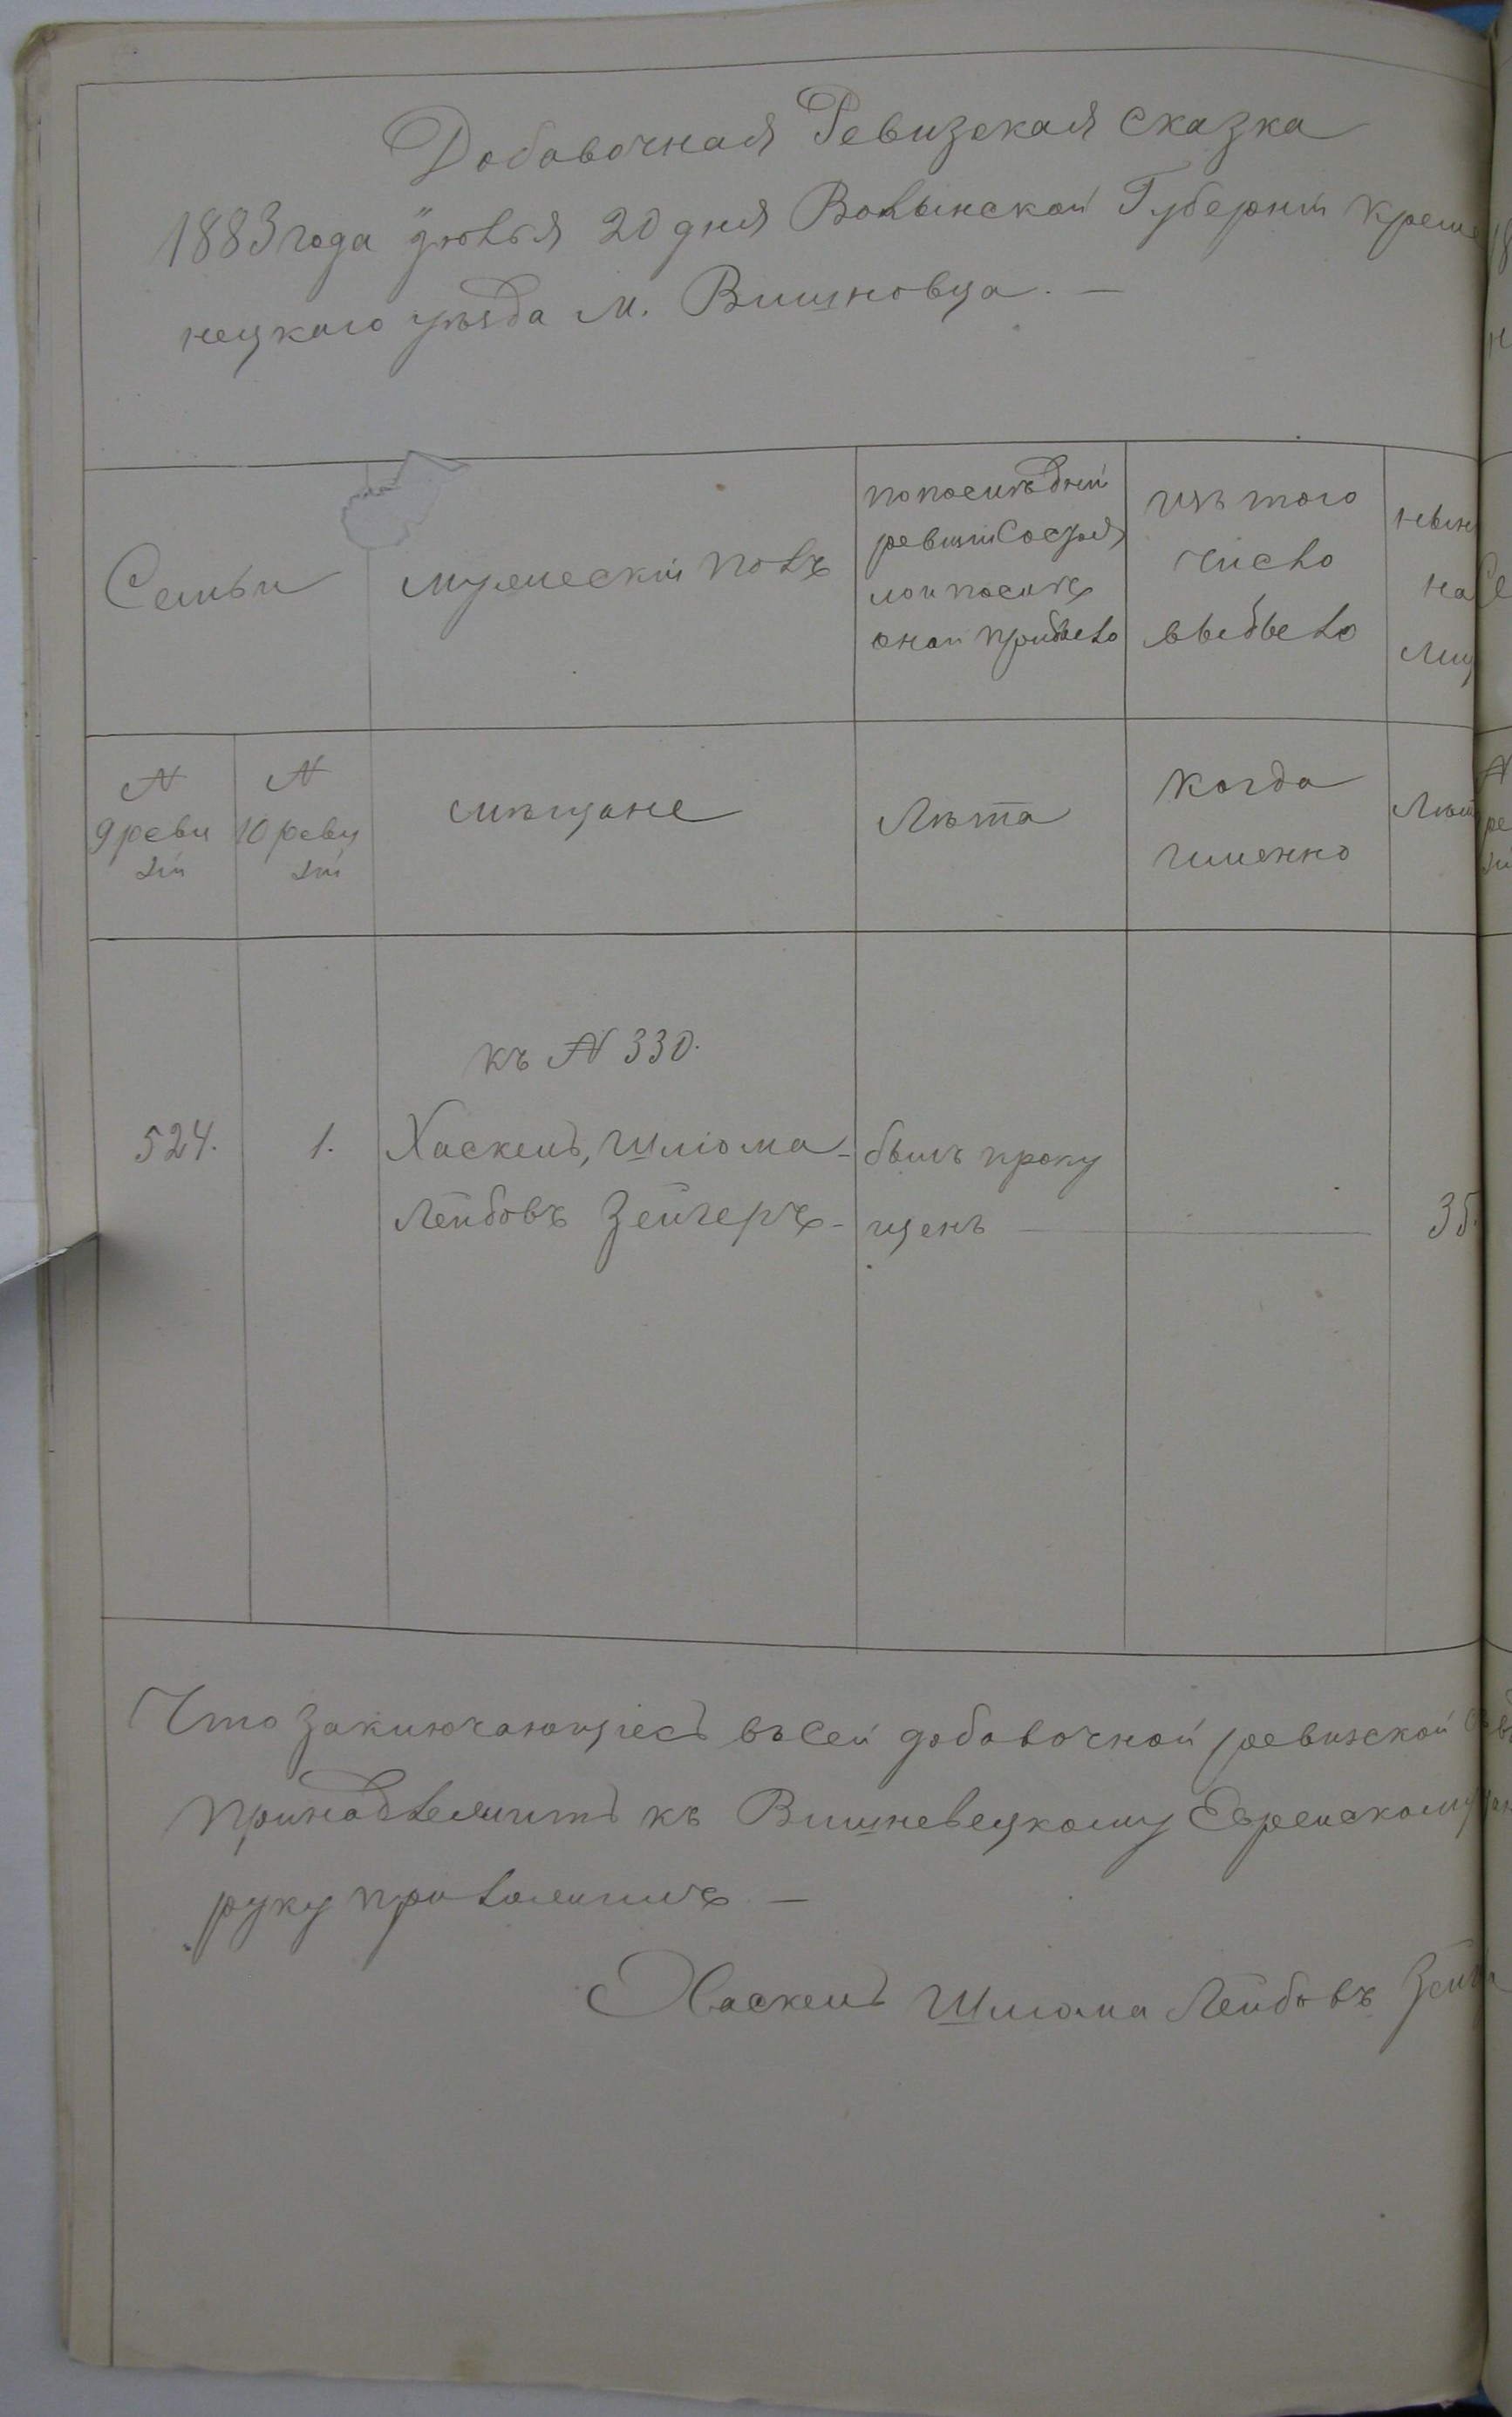 Добавочная Ревизская сказка
1883 года Іюля 20 дня Волынской Губерніи Креме
нецкаго уѣзда м. Вишновца. —
Семьи
мужескій полъ
по послѣдней
ревизіи состоя
ло и послѣ
оной прибыло
изъ того
число
выбыло
нынѣ
на
лиц
N
9 реви
зіи
N
10 реви
зіи
мѣщане
Лѣта
когда
именно
Лѣт
къ N 330.
524. 1. Хаскель, Шлiома - былъ пропу
Лейбовъ Зейгеръ - щенъ — 35.
Что заключающiесь въ сей добавочной ревизской
принадлежитъ къ Вишневецкому Еврейскому
руку приложилъ —
Хаскель Шлiома Лейбовъ Зейг